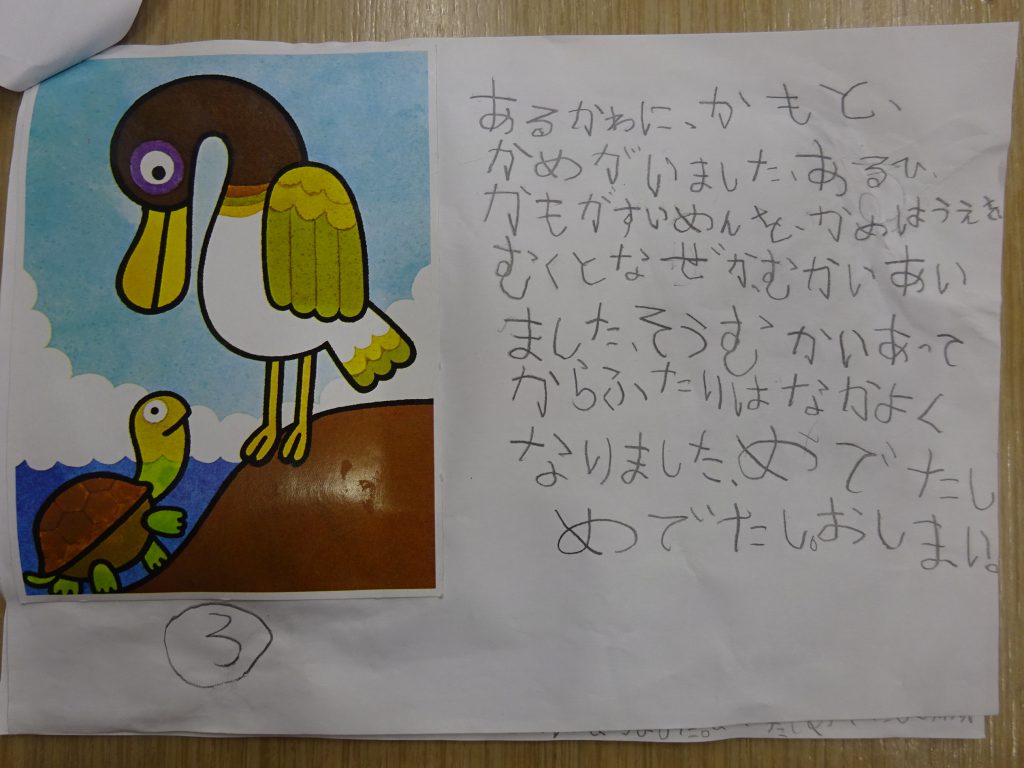 あるかわに、かもと、
かめがいました、あるひ、
かもがすいめんを、かめはうえを
むくとなぜか、むかいあい
ました、そうむかいあって
からふたりはなかよく
なりました、めでたし
めでたし。おしまい。
3